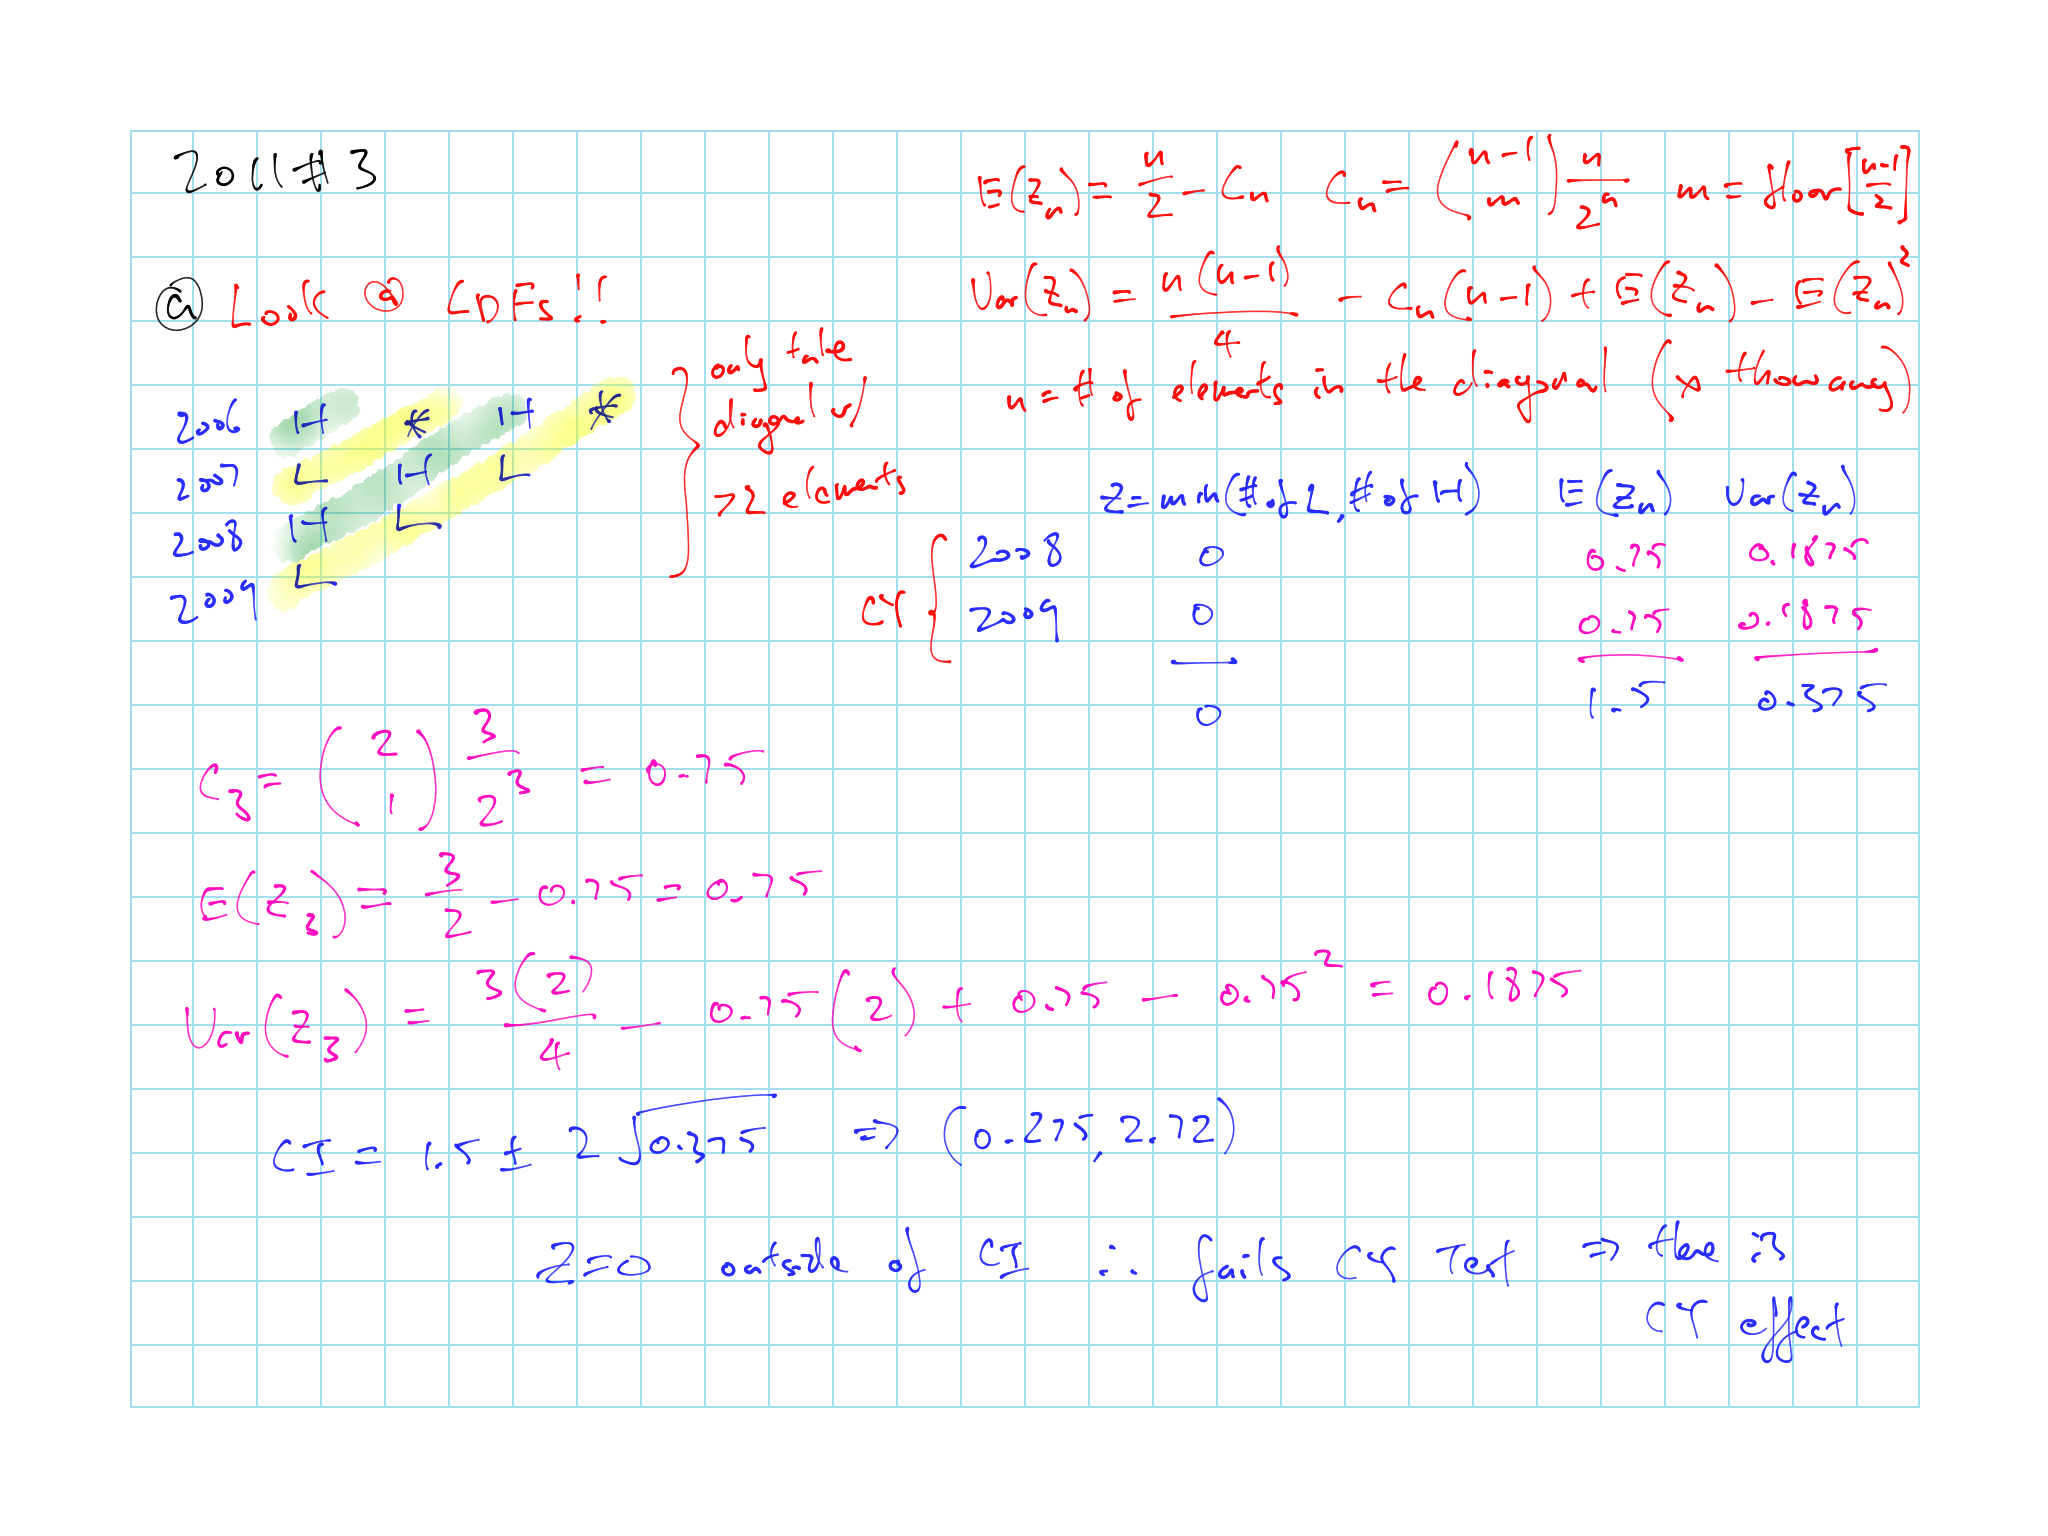 2011#3
E(Zn) = n/2 - Cn   Cn = (n-1 m) n/2^n   m = floor[n-1/2]
Var(Zn) = n(n-1)/4 - Cn(n-1) + E(Zn) - E(Zn)^2
n = # of elements in the diagonal (* throw away)
ⓐ Look @ LDFs!!
2006 H * H *
2007 L H L
2008 H L
2009 L
only take
diagonal w/
>2 elements
Z=min(# of L, # of H) E(Zn) Var(Zn)
CY
2008 0 0.75 0.1875
2009 0 0.75 0.1875
0 1.5 0.375
C3 = (2 1) 3/2^3 = 0.75
E(Z3) = 3/2 - 0.75 = 0.75
Var(Z3) = 3(2)/4 - 0.75(2) + 0.75 - 0.75^2 = 0.1875
CI = 1.5 ± 2√0.375 => (0.275, 2.72)
Z=0 outside of CI ∴ fails CY Test => there is
CY effect